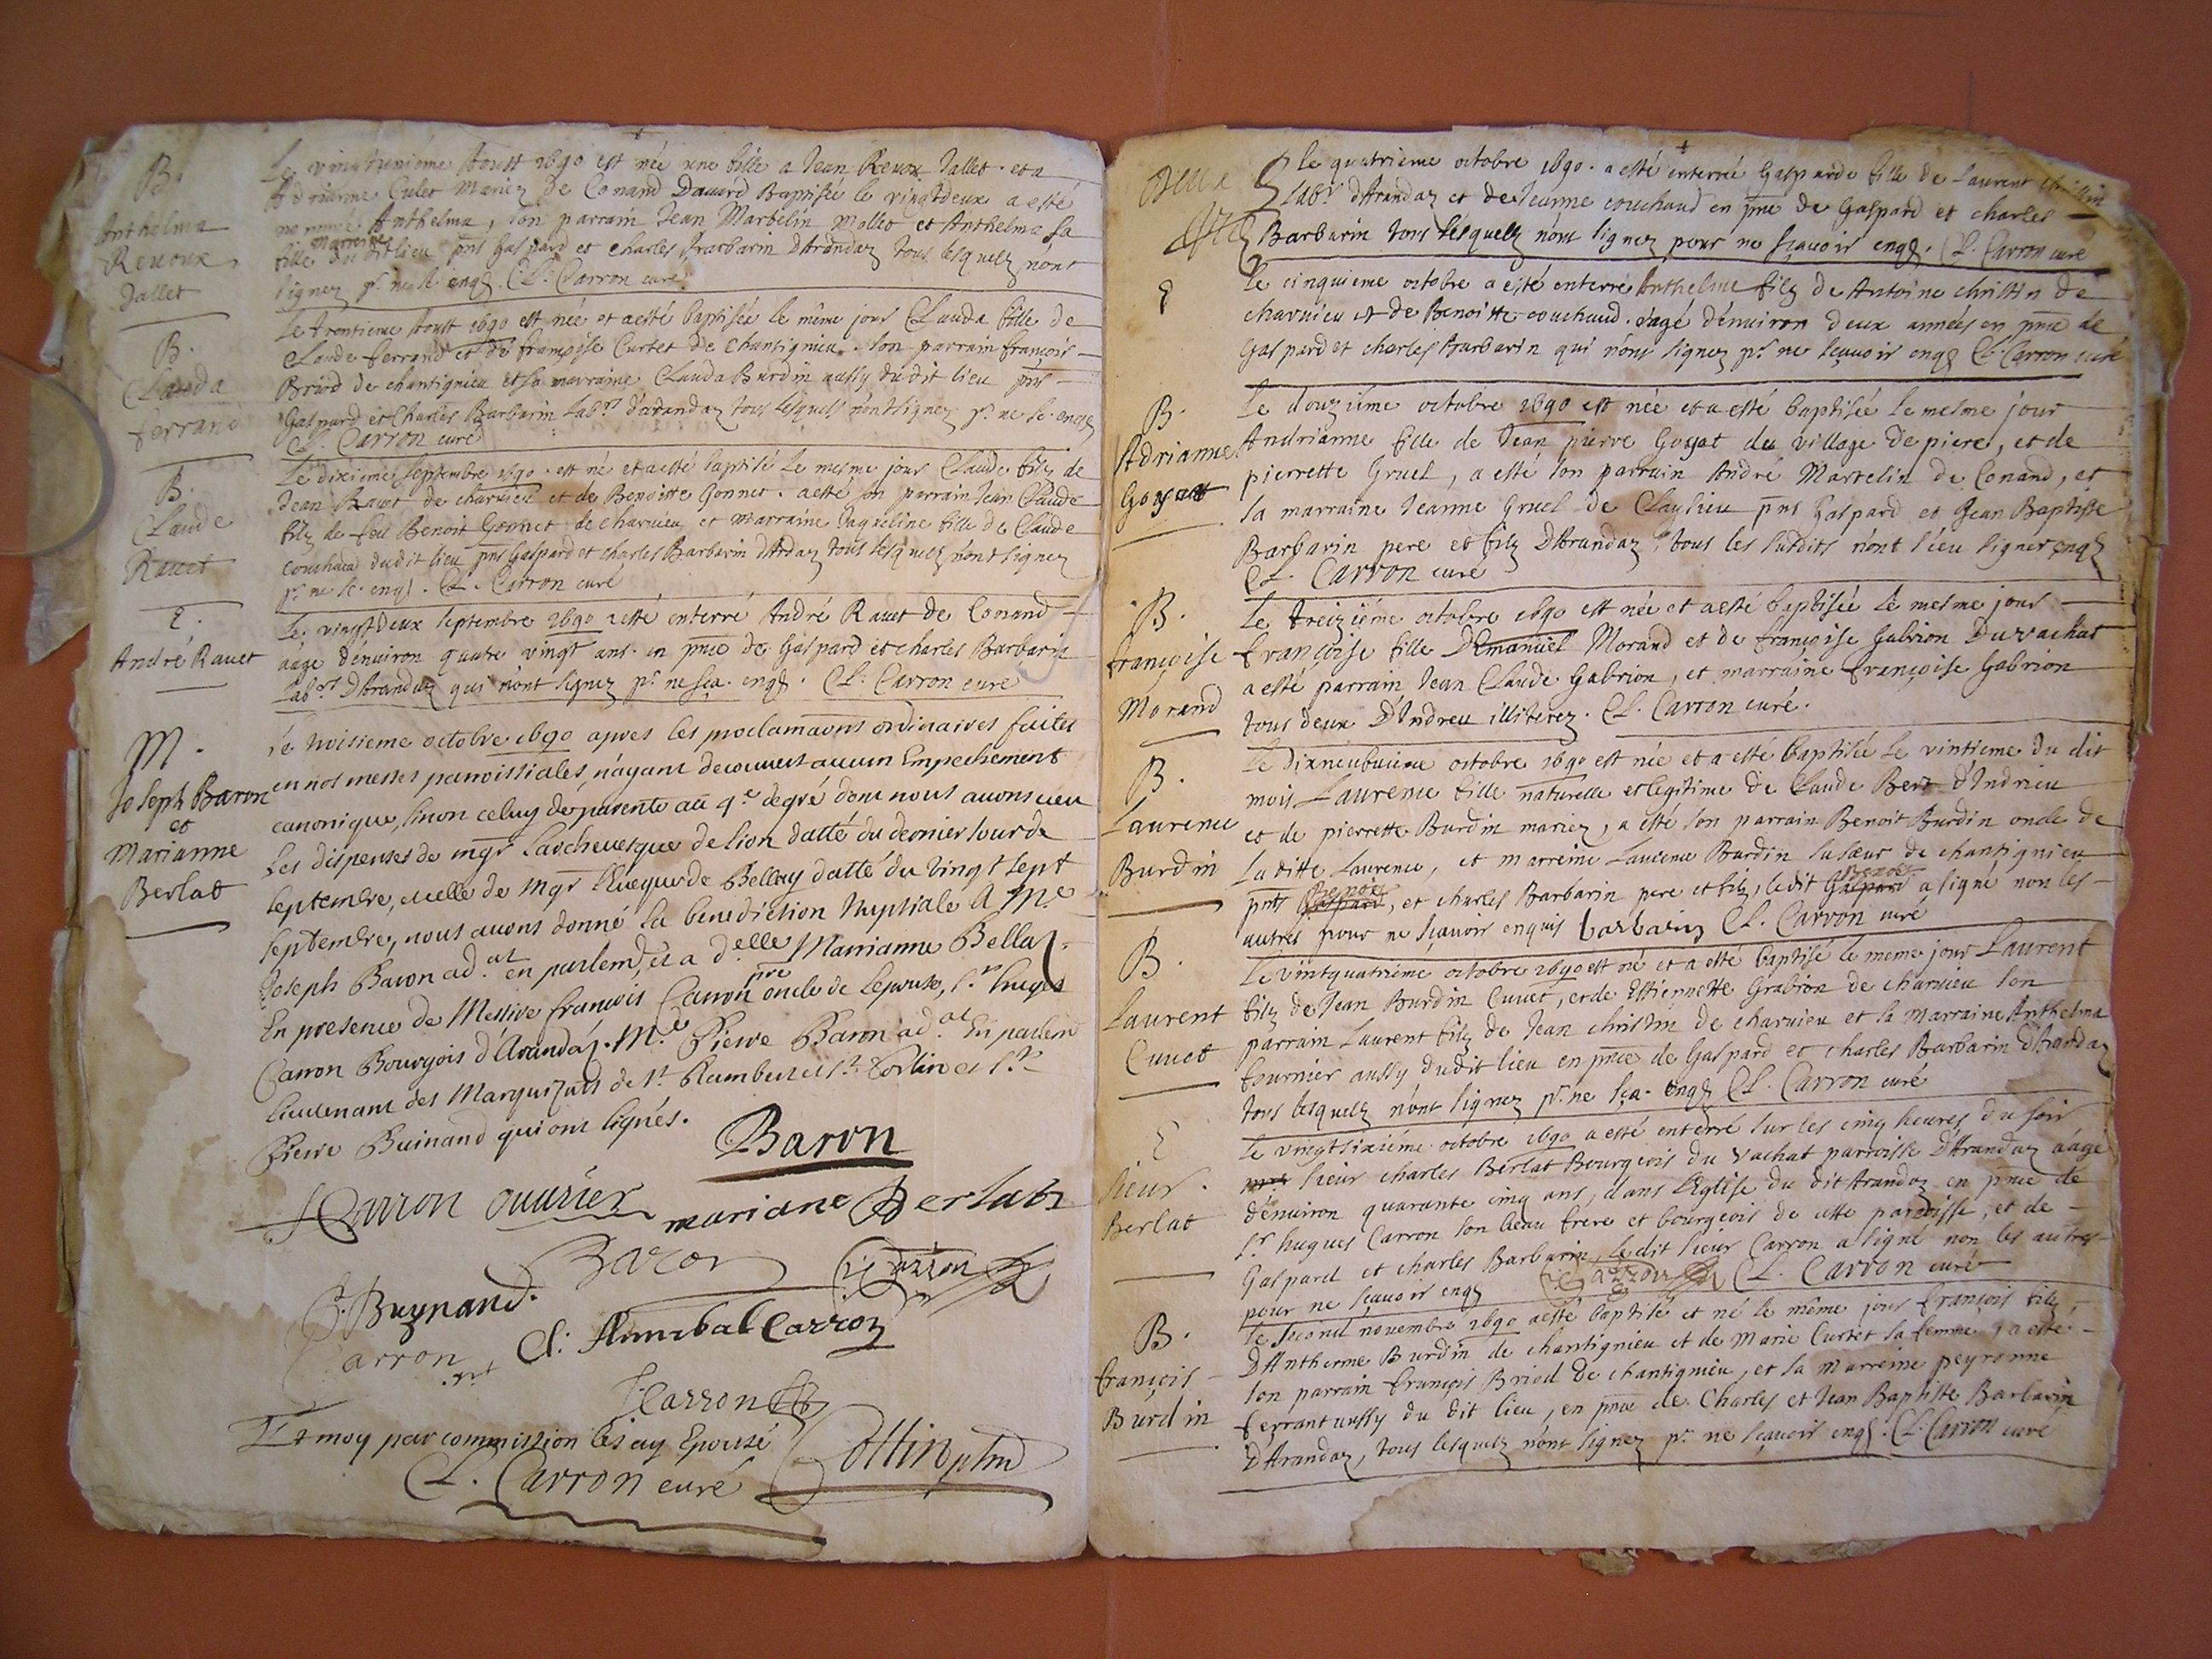 B.
Anthelma
Revoux
Jallet
Le vingtunieme Aoust 1690 est née une fille a Jean Revox Jallet. et a
Adrianne Culet Mariez de Conand Baptisée le vingtdeux a esté
nommée Anthelma, son parrain Jean Martelin Mollet et Anthelma sa
fille Marreine dudit lieu pnts Gaspard et Charles Barbarin dArandaz tous lesquelz n'ont
signez pr. ne sc. enqz. Cl. Carron curé
B.
Clauda
ferrand
Le trentieme Aoust 1690 est née et a esté baptisée le même jour Clauda fille de
Claude ferrand et de françoise Curtet de Chantignieu. son parrain françois
Briod de chantignieu et sa marraine Clauda Burdin aussy du dit lieu pnts
Gaspard et Charles Barbarin Labrs d'arandaz tous lesquels n'ont signez pr. ne sc. enqz
Cl. Carron curé
B.
Claude
Ravet
Le dixieme Septembre 1690. est né et a esté baptisé le mesme jour Claude filz de
Jean Ravet de charvieu et de Benoitte Gonnet. a esté son parrain Jean Claude
filz de feu Benoit Gonnet de charvieu, et marraine Jaqueline fille de Claude
couchaud dudit lieu pnts Gaspard et charles Barbarin dArdaz tous lesquelz n'ont signez
pr. ne sc. enqz. Cl. Carron curé
E.
André Ravet
Le vingtdeux Septembre 1690 a esté enterré André Ravet de Conand
aage d'environ quatre vingt ans. en pnce de Gaspard et charles Barbarin
Labrs DArandaz qui n'ont signez pr. ne sça. enqz. Cl. Carron curé
M.
Joseph Baron
et
Marianne
Berlat
Le troisieme octobre 1690 apres les proclamaons ordinaires faites
en nos messes parroissiales n'ayant decouvert aucun Empechement
canonique, sinon celuy de parenté au 4.e degré dont nous avons veu
les dispenses de mgr Larchevesque de lion datté du dernier jour de
septembre, et celle de Mgr l'Evesque de Belley datté du vingt sept
septembre, nous avons donné la benediction Nuptiale A Me.
Joseph Baron ad.at en parlemt, et a d.elle Marrianne Bellat.
En presence de Messire francois Carron pre oncle de l'epouse, sr. huges
Carron Bourgois d'Arandaz. Me. Pierre Baron ad.at En parlem
lieutenant des Marquizats de St. Rambert et St. Sorlin et Sr.
Pierre Buinand qui ont signés.
Baron
Carron ouvrier
mariane Berlatz
Baron
Carron
P. Buynand.
Cl: Annibal Carron
Carron
Carron
Et moy par commission les ay Epousé
Cl. Carron curé
Cottin
Deux
le quatrieme octobre 1690. a esté enterré Gasparde fille de laurent christin
Labr. dArandaz et de Jeanne couchaud en pnce de Gaspard et charles
Barbarin tous lesquelz n'ont signez pour ne sçavoir enqz. Cl. Carron curé
E
Le cinquieme octobre a esté enterré Anthelme filz de Antoine christin de
charvieu et de Benoitte couchaud. d'agé d'environ deux années en pnce de
Gaspard et charles Barbarin qui n'ont signez pr. ne sçavoir enqz Cl. Carron curé
B.
Adrianne
Goyat
Le douzième octobre 1690 est née et a esté baptisée le mesme jour
Andrianne fille de Jean pierre Goyat du village de piere, et de
pierrette Gruel, a esté son parrain André Martelin de Conand, et
sa marraine Jeanne Gruel de Claylieu pnts Gaspard et Jean Baptiste
Barbarin pere et filz DArandaz. tous les susdits n'ont sceu signer enqz
Cl. Carron curé
B.
françoise
Morand
Le treizième octobre 1690 est née et a esté baptisée le mesme jour
françoise fille DEmanuel Morand et de françoise Gabrion Duvachat
a esté parrain Jean Claude Gabrion, et marraine françoise Gabrion
tous deux D'Indreu illiterez. Cl. Carron curé.
B.
Laurence
Burdin
Le dixneubvieme octobre 1690 est née et a esté baptisée le vintieme du dit
mois Laurence fille naturelle et legitime de Claude Bert d'Indrieu
et de pierrette Burdin mariez, a esté son parrain Benoit Burdin oncle de
Laditte Laurence, et marreine Laurence Burdin sa sœur de chantignieu
pnts Gaspard Benoit, et charles Barbarin pere et filz, ledit Gaspard Benoit a signé non les
autres pour ne sçavoir enquis barbarin Cl. Carron curé
B.
Laurent
Cuvet
Le vintquatrième octobre 1690 est né et a esté baptisé le meme jour Laurent
filz de Jean Burdin Cuvet, et de Estiennette Grabron de charvieu son
parrain Laurent filz de Jean christin de charvieu et sa marraine Anthelma
fournier aussy dudit lieu en pnce de Gaspard et charles Barbarin dArandaz
tous lesquelz n'ont signez pr. ne sça. enqz Cl. Carron curé
E
Sieur.
Berlat
Le vingtsixième octobre 1690 a esté enterré sur les cinq heures du soir
sieur charles Berlat Bourgeois du vachat parroisse DArandaz aagé
d'environ quarante cinq ans, dans l'Eglise du dit Arandaz en pnce de
Sr. hugues Carron son beau frere et bourgeois de cette paroisse, et de
Gaspard et charles Barbarin, ledit sieur Carron a signé non les autres
pour ne sçavoir enqz Carron Cl. Carron curé
B.
françois
Burdin
Le second novembre 1690 a esté baptisé et né le même jour françois filz
DAntherme Burdin de chantignieu et de Marie Curtet sa femme, a esté
son parrain françois Briod de chantignieu, et sa marreine peyronne
ferrant aussy du dit lieu, en pnce de Charles et Jean Baptiste Barbarin
DArandaz, tous lesquelz n'ont signez pr. ne sçavoir enqz. Cl. Carron curé